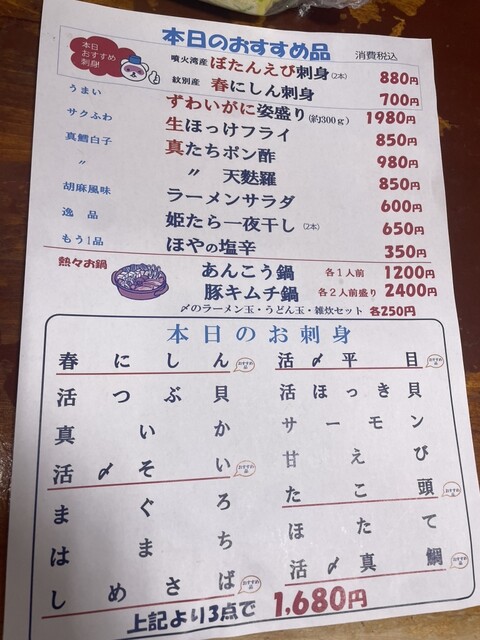 本日のおすすめ品 消費税込
本日
おすすめ
刺身!
噴火湾産 ぼたんえび刺身(2本) 880円
紋別産 春にしん刺身 700円
うまい ずわいがに姿盛り(約300g) 1980円
サクふわ 生ほっけフライ 850円
真鱈白子 真たちポン酢 980円
〃 〃 天麩羅 850円
胡麻風味 ラーメンサラダ 600円
逸品 姫たら一夜干し(2本) 650円
もう1品 ほやの塩辛 350円
熱々お鍋 あんこう鍋 各1人前 1200円
豚キムチ鍋 各2人前盛り 2400円
〆のラーメン玉・うどん玉・雑炊セット 各250円
本日のお刺身
春にしん おすすめ品 活〆平目 おすすめ品
活つぶ貝 活ほっき貝
真いか サーモン
活〆そい おすすめ品 甘えび
まぐろ たこ頭 おすすめ品
はまち ほたて
しめさば おすすめ品 活〆真鯛 おすすめ品
上記より3点で 1,680円